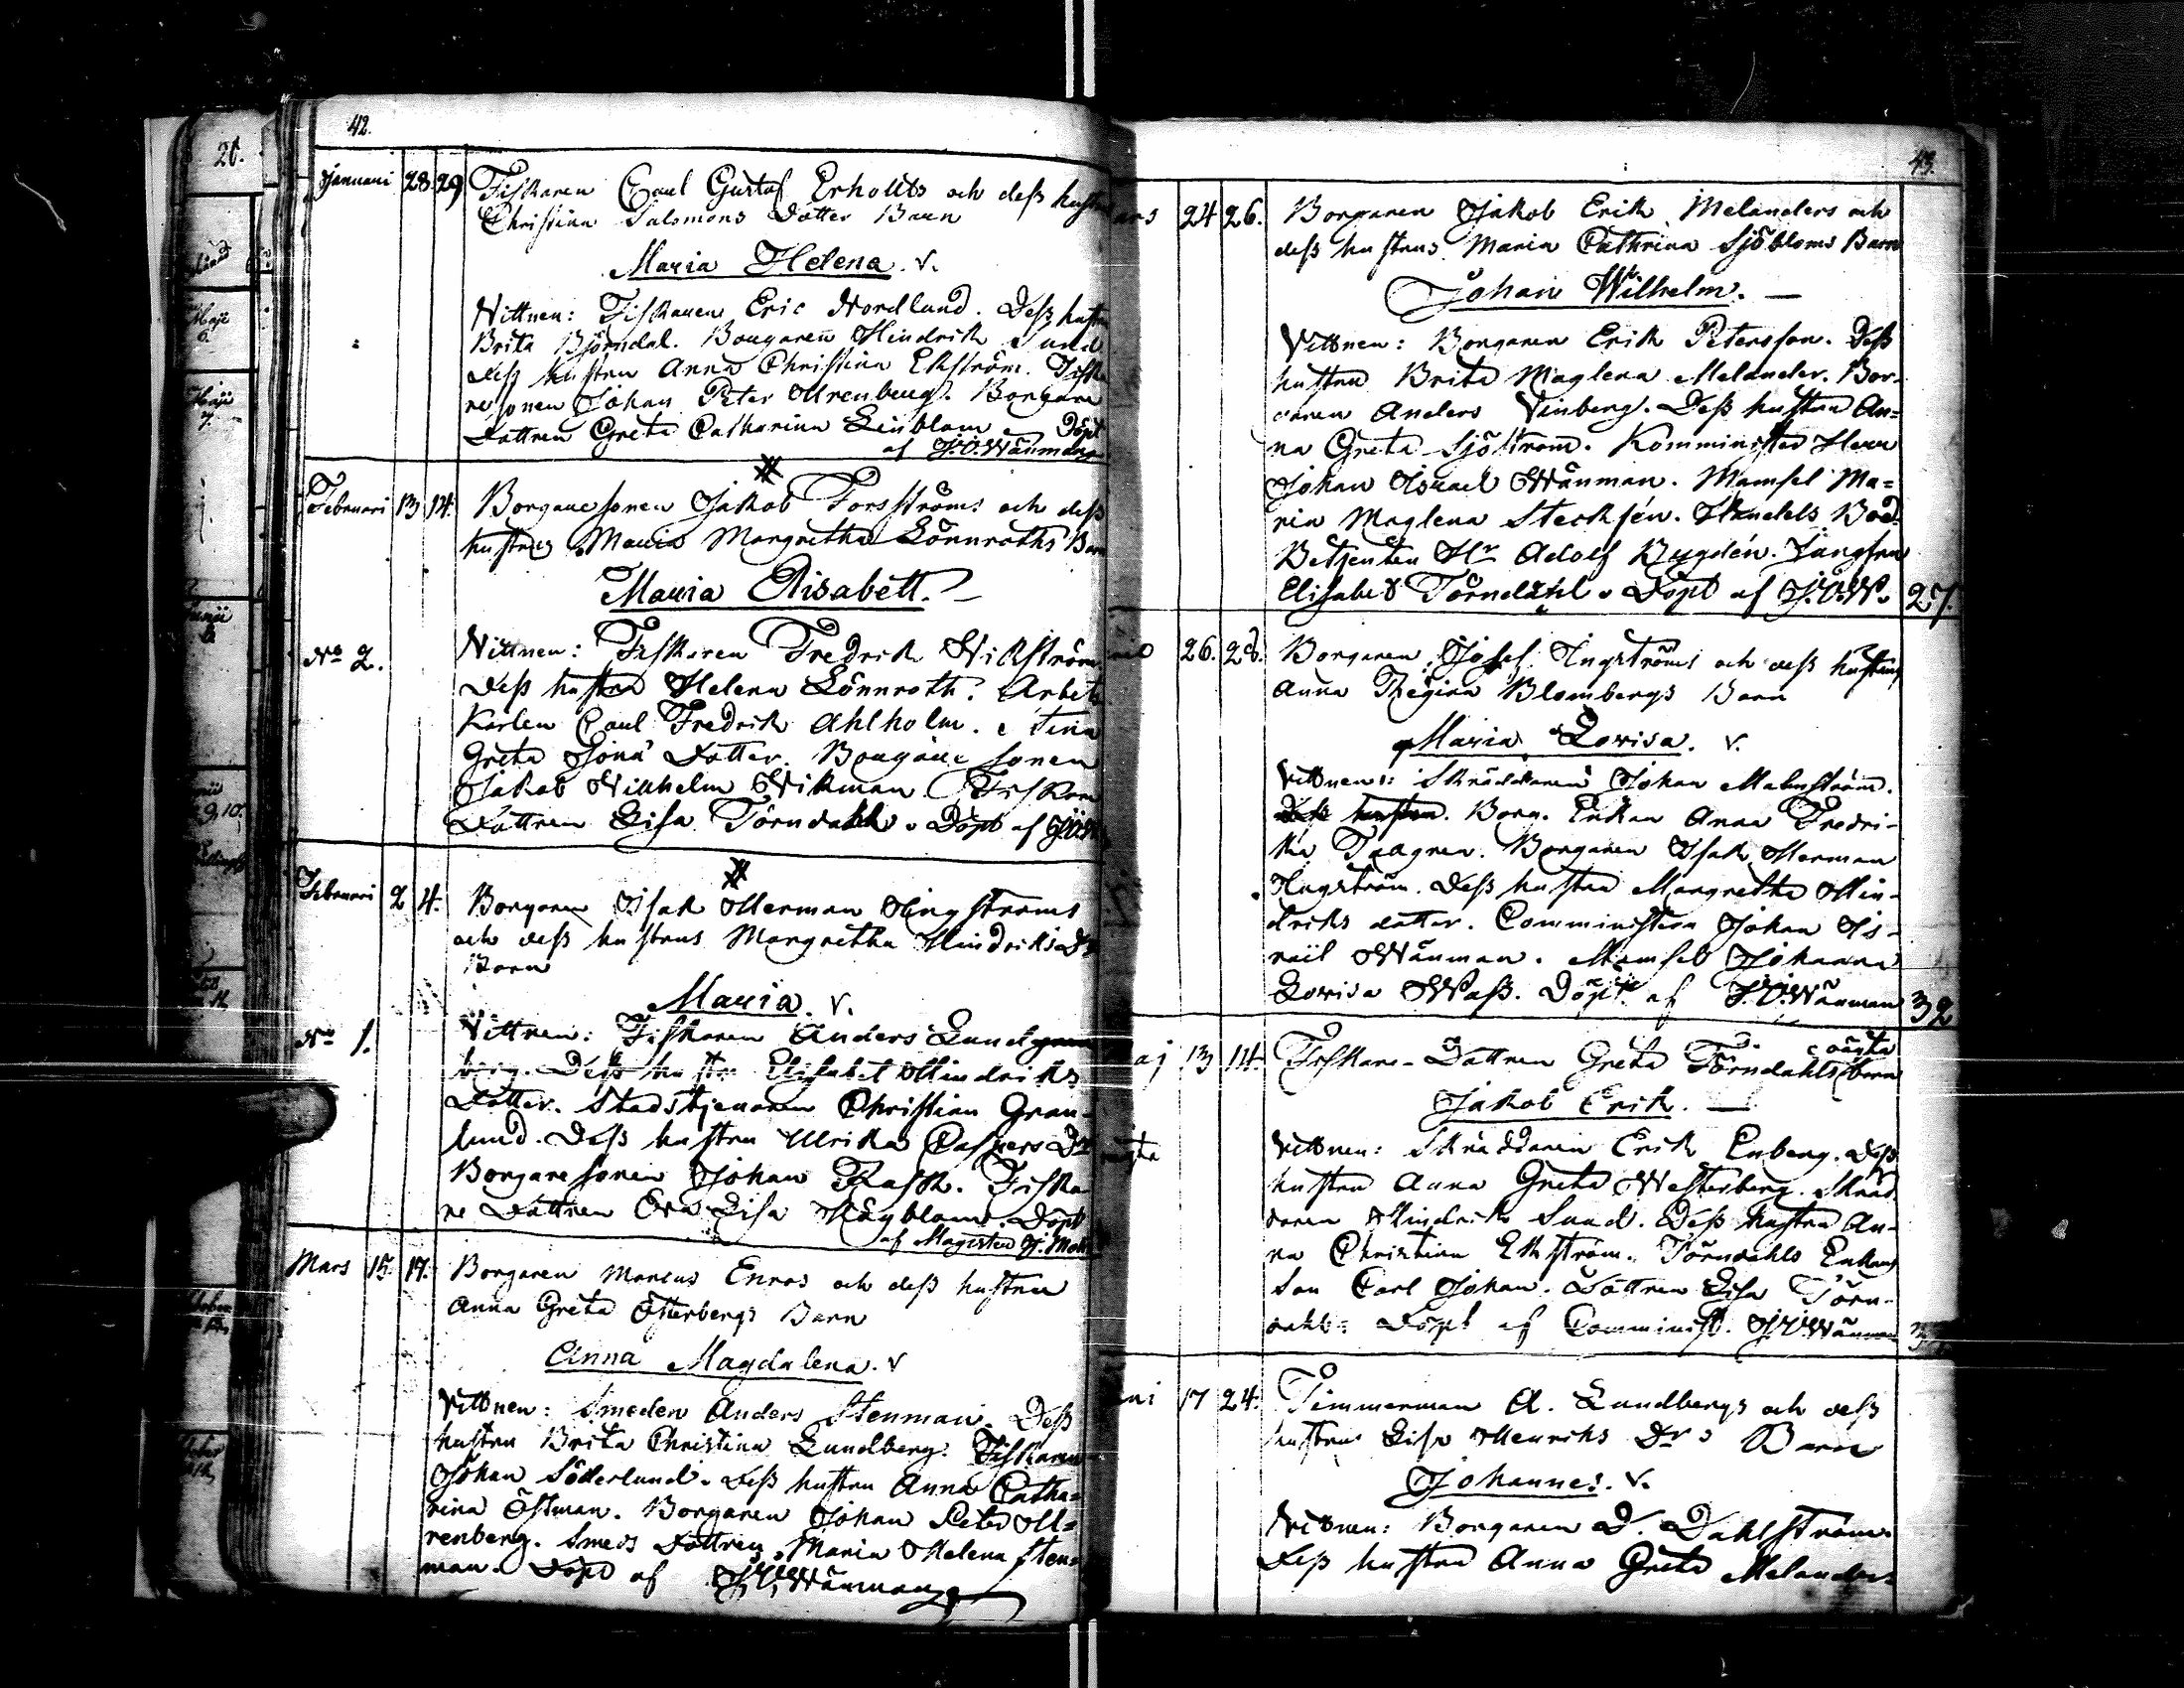 42.
Januari 28. 29 Fiskaren Carl Gustaf Erholtz och dess hustru
Christina Salomons Dotter Barn
Maria Helena. v.
Vittnen: Fiskaren Eric Nordlund. Dess hustru
Brita Björndal. Borgaren Hindrik Sund
Dess hustru Anna Christina Ekström. Fiska
re sonen Johan Peter Ahrenberg. Borgare
Dottren Greta Catharina Linblom Döpt
af J. I. Wänman
Februari 13 14. Borgaresonen Jakob Forsströms och dess
hustrus Maria Margretha Lönnroths Barn
Maria Elisabett.
No 2. Vittnen: Fiskaren Fredrik Wikström
Dess hustru Helena Lönnroth. Arbets
Karlen Carl Fredrik Ahlholm. Stina
Greta Jona Dotter. Borgare sonen
Jakob Wilhelm Wikman Fiskare
Dottren Lisa Törndahl. Döpt af J.I.W.
Februari 2 4. Borgaren Isak Herman Hingströms
och dess hustrus Margretha Hindriks Dr
Barn
Maria. v.
No 1. Vittnen: Fiskaren Anders Lund
berg. Dess hustru Elisabet Hindriks
Dotter. Stadstjenaren Christian Gran-
lund. Dess hustru Ulrika Caspers Dr
Borgaresonen Johan Rask. Fiska
re Dottren Eva Lisa Högblom. Döpt
af Magister J. Moli
Mars 15. 17. Borgaren Marcus Enros och dess hustru
Anna Greta Österbergs Barn
Anna Magdalena. v
Vittnen: Smeden Anders Stenman. Dess
hustru Brita Christina Lundberg. Fiskaren
Johan Söderlund. Dess hustru Anna Catha-
rina Östman. Borgaren Johan Peter Ah-
renberg. Smeds Dottren Maria Helena Sten-
man. Döpt af J. I. Wänman
43.
ars 24 26. Borgaren Jakob Erik Melanders och
dess hustrus Maria Cathrina Sjöbloms Barn
Johan Wilhelm.
Vittnen: Borgaren Erik Petersson. Dess
hustru Brita Maglena Melander. Bor-
garen Anders Vinberg. Dess hustru An-
na Greta Sjöström. Komminister Herr
Johan Israel Wänman. Mamsel Ma-
ria Maglena Stecksén. Handels Bod
Betjenten Hr Adolf Rygdén. Jungfru
Elisabet Törndahl. Döpt af J. I. W. 27.
26. 28. Borgaren Josef Ingströms och dess hustrus
Anna Regina Blombergs Barn
Maria Lovisa. v.
Vittnen: Skräddaren Johan Malmström.
Dess hustru. Borg. Enkan Anna Fredri-
ka Tallgren. Borgaren Isak Herman
Hingström. Dess hustru Margretha Hin-
driks dotter. Comministern Johan Is-
rail Wänman. Mamsell Johanna
Lovisa Wass. Döpt af J. I. Wänman 32
aj 13 14. Fiskare-Dottren Greta Törndahls oägta barn
Jakob Erik.
ägta
Vittnen: Skräddaren Erik Enberg. Dess
hustru Anna Greta Westerberg. Skräd
daren Hindrik Sund. Dess hustru An-
na Christina Ekström. Törndahls Enkans
Son Carl Johan. Dottren Lisa Törn-
dahl. Döpt af Comminist. J. I. Wänman
ni 17 24. Timmerman A. Lundbergs och dess
hustrus Lisa Henriks Drs Barn
Johannes. v.
Vittnen: Borgaren D. Dahlström
Dess hustru Anna Greta Melander.